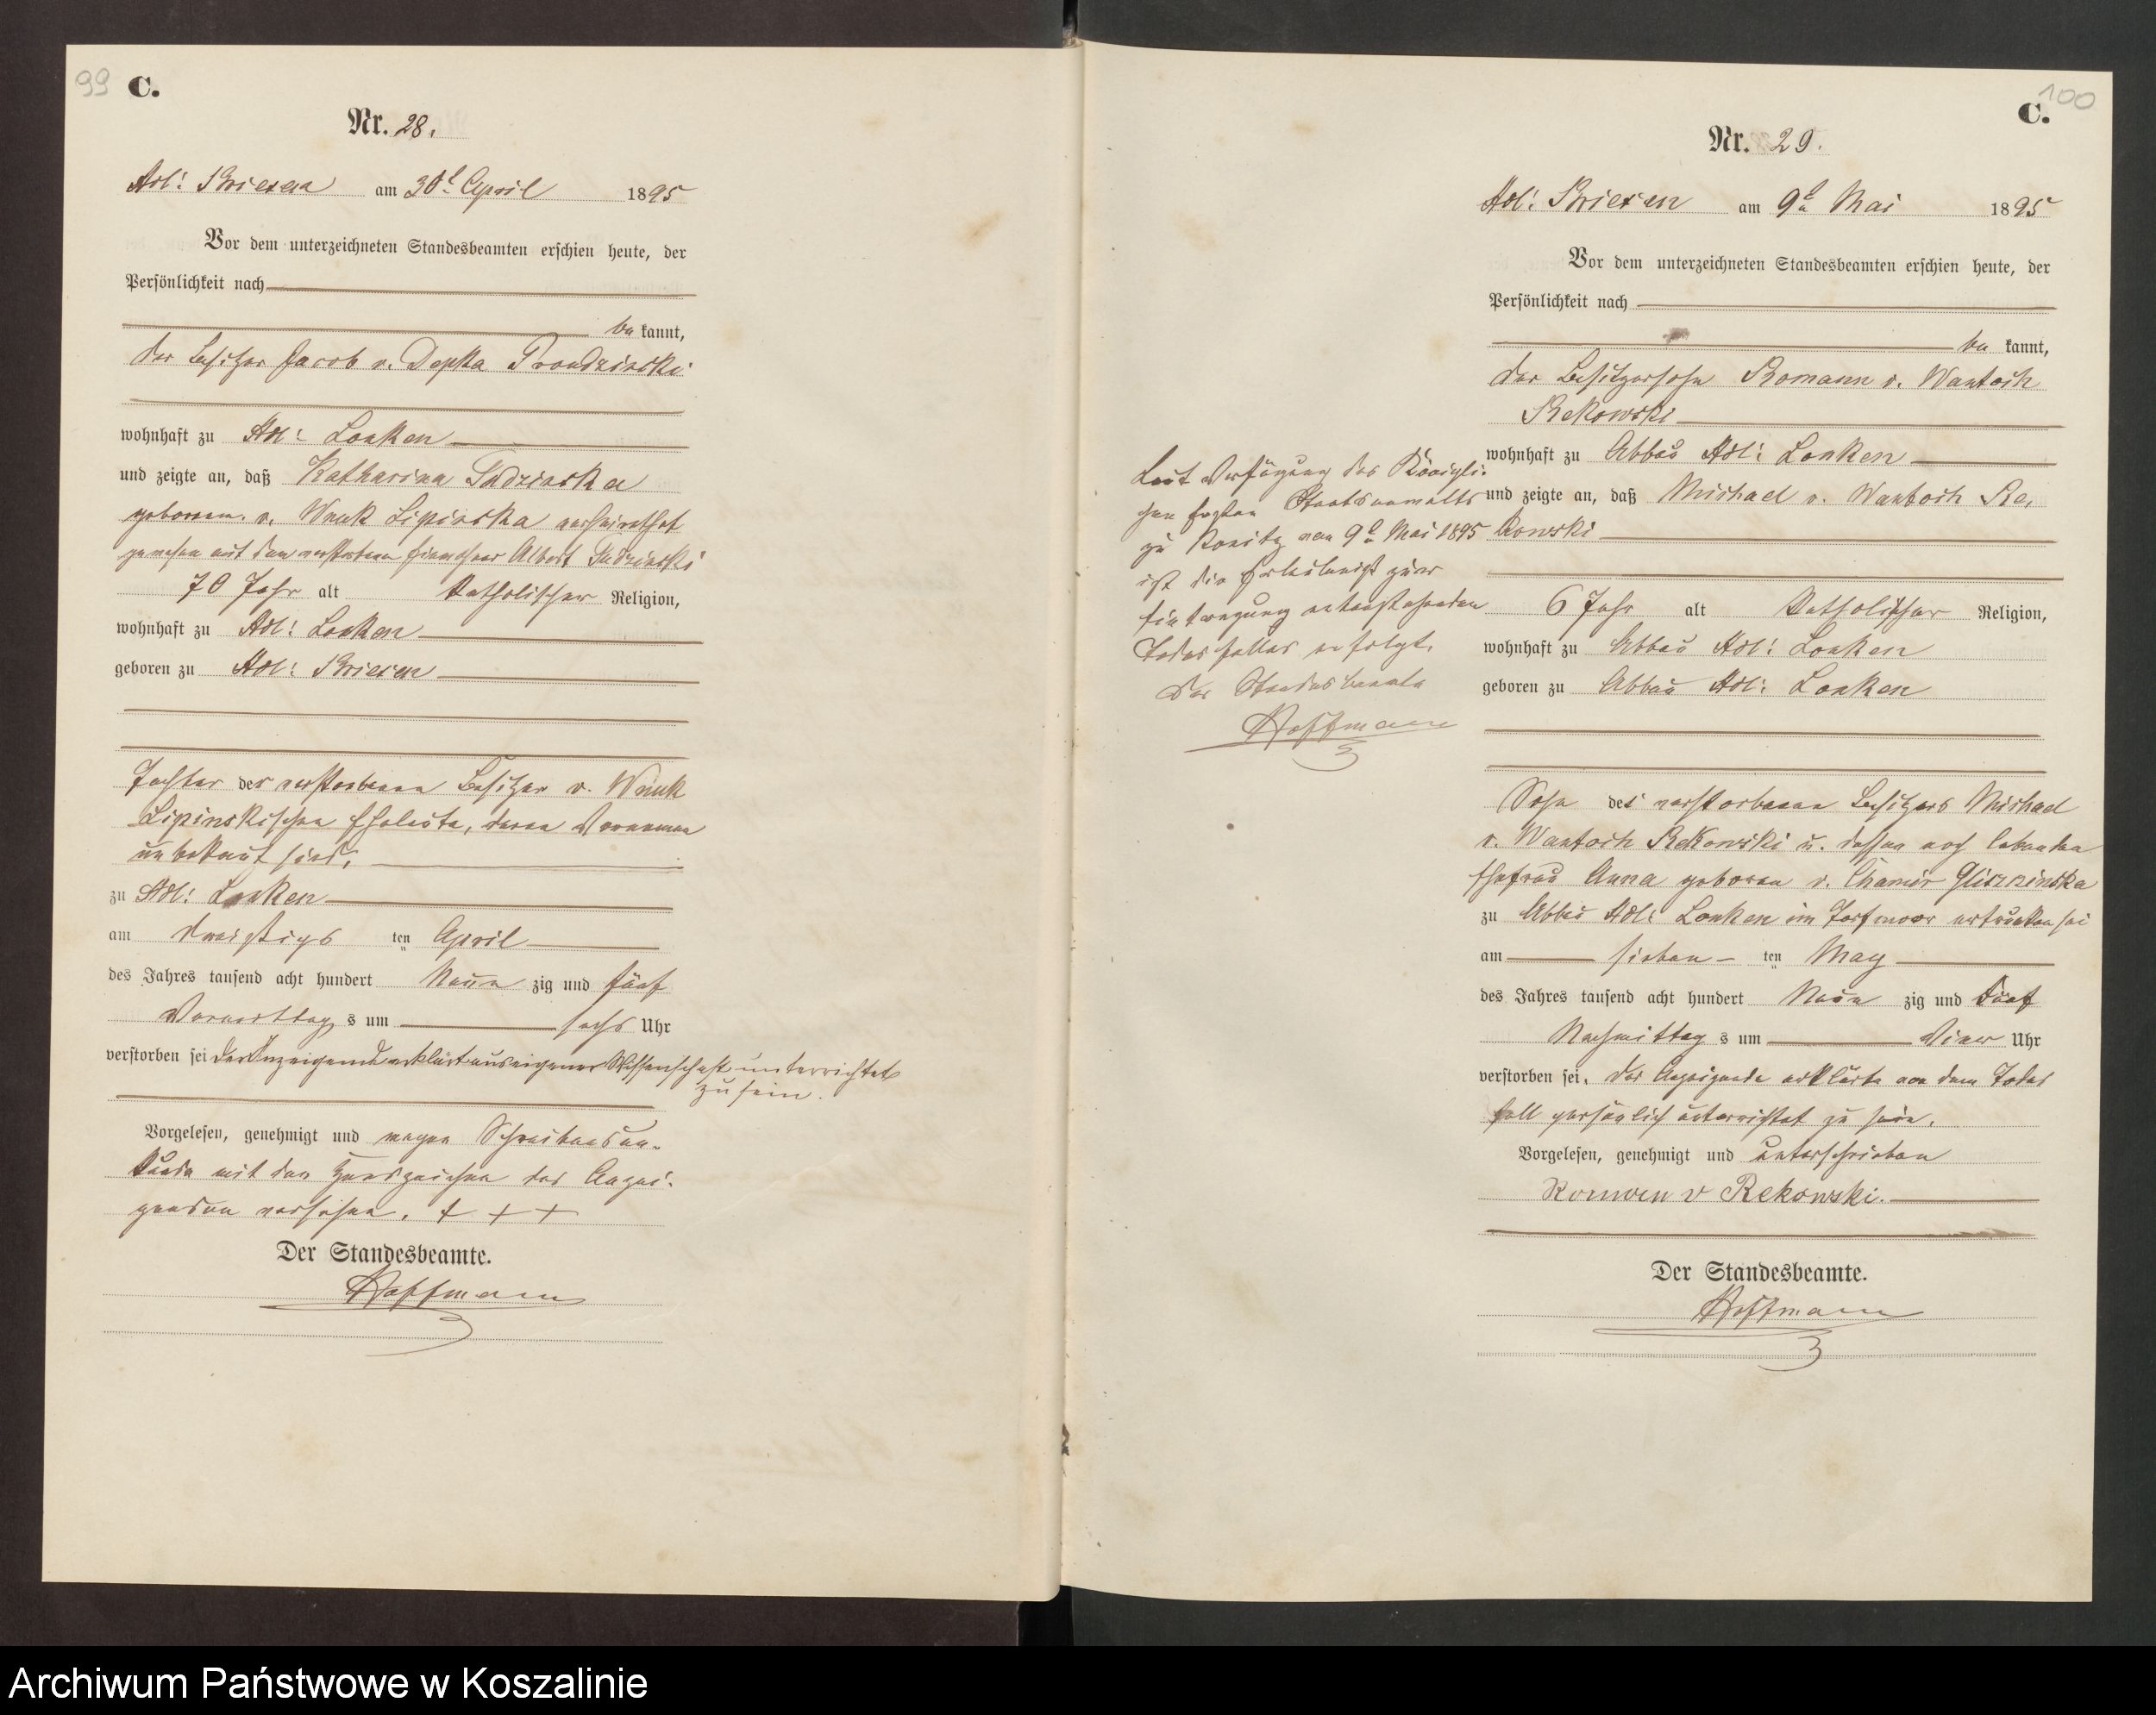 99 C.
Nr. 28.
Adl: Briesen am 30t April 1895
Vor dem unterzeichneten Standesbeamten erschien heute, der
Persönlichkeit nach
be kannt,
der Besitzer Jacob v. Depka Prondzinski
wohnhaft zu Adl: Lonken
und zeigte an, daß Katharina Sudzinska
geborene v. Wnuk Lipinska verheirathet
gewesen mit dem verstorbenen Albert Sudzinski
70 Jahr alt Katholischer Religion,
wohnhaft zu Adl: Lonken
geboren zu Adl: Briesen
Tochter des verstorbenen Besitzer v. Wnuk
Lipinskischen Eheleute, deren Vornamen
unbekannt sind,
zu Adl: Lonken
am dreißigs ten April
des Jahres tausend acht hundert Neun zig und fünf
Vormittag s um sechs Uhr
verstorben sei der Anzeigende erklärt aus eigener Wissenschaft unterrichtet
zu sein.
Vorgelesen, genehmigt und wegen Schreibensun-
kunde mit den Handzeichen des Anzei-
genden versehen. + + +
Der Standesbeamte.
Hoffmann
100
C.
Nr. 29.
Adl: Briesen am 9t Mai 1895
Vor dem unterzeichneten Standesbeamten erschien heute, der
Persönlichkeit nach
be kannt,
der Besitzersohn Romann v. Wantoch
Rekowski
wohnhaft zu Abbau Adl: Lonken
und zeigte an, daß Michael v. Wantoch Re,
kowski
6 Jahr alt Katholischer Religion,
wohnhaft zu Abbau Adl: Lonken
geboren zu Abbau Adl: Lonken
Sohn des verstorbenen Besitzers Michael
v. Wantoch Rekowski u. dessen noch lebenden
Ehefrau Anna geboren v. Chamir Gliszninska
zu Abbau Adl: Lonken im Torfmoor ertrunken sei
am sieben ten May
des Jahres tausend acht hundert Neun zig und Fünf
Nachmittag s um Vier Uhr
verstorben sei. Der Anzeigende erklärte von dem Todes
fall persönlich unterrichtet zu sein.
Vorgelesen, genehmigt und unterschrieben
Roman v Rekowski.
Der Standesbeamte.
Hoffmann
Laut Verfügung des Königli-
chen Ersten Staatsanwalts
zu Konitz vom 9t Mai 1895
ist die Erlaubniß zur
Eintragung
Todesfalles erfolgt.
Der Standesbeamte
Hoffmann
Archiwum Państwowe w Koszalinie